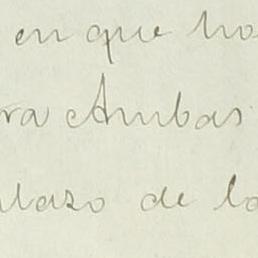 en que no
ra Ambas
lazo de lo